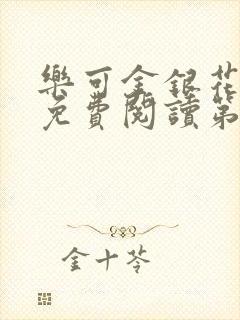 樂可金銀花
免費閱讀第
金十苓